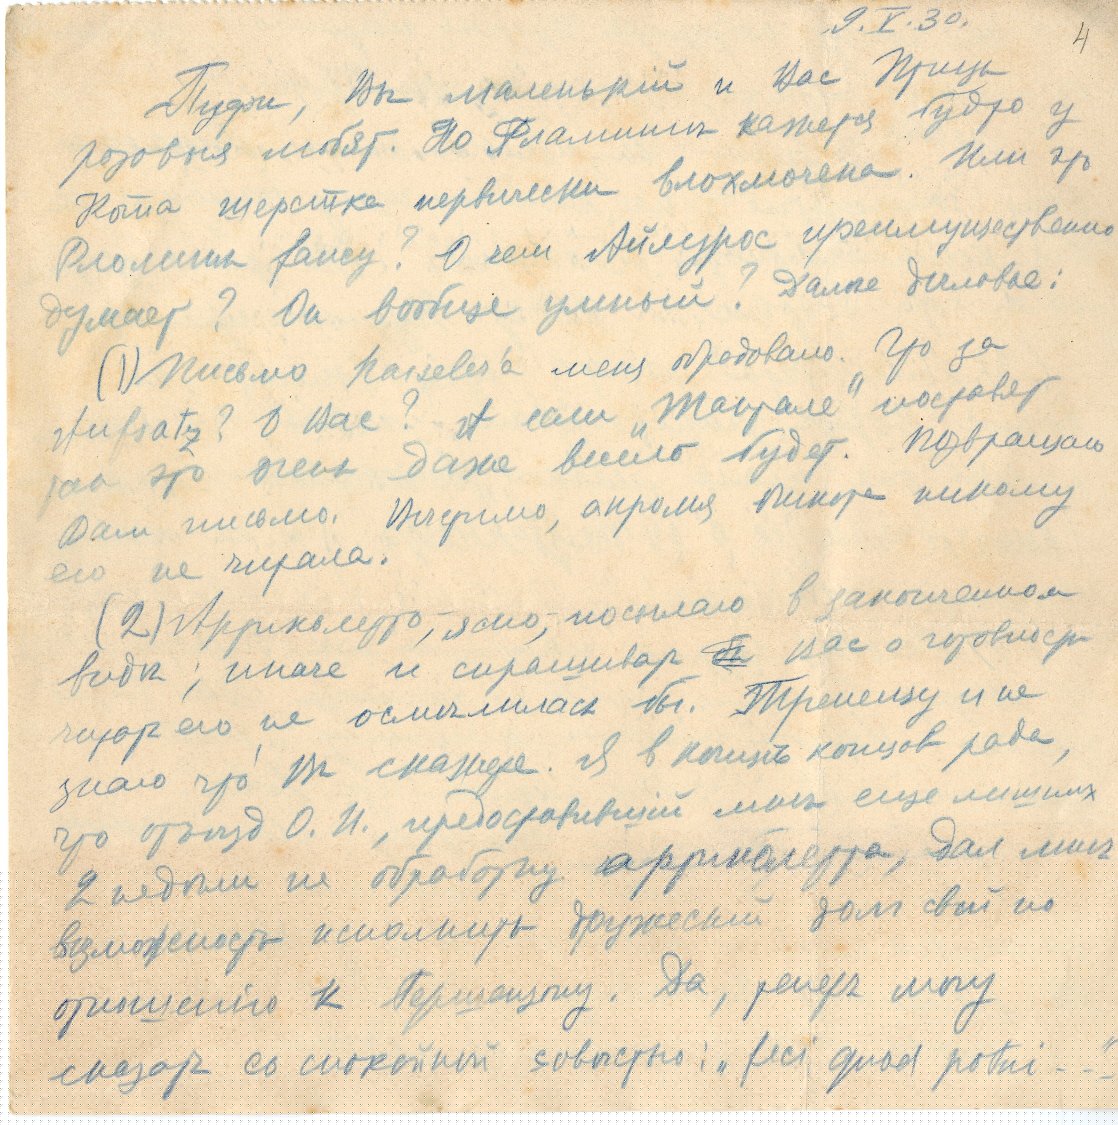 9.V.30.
4
Пуфи, Вы маленькій и Вас Птицы
розовыя любят. Но Фламинги кажется будто у
Кота шерстка нервически влохмочена. Или это
fancy? О чем Айлурос преимущественно
думает? Он вообще умный? Далее деловое:
(1) Письмо меня обрадовало. Что за
Aufsatz? О Вас? А если поставят
так это очень даже весело будет. Возвращаю
Вам письмо. никому
его не читала.
(2) Арриколетто, ясно, посылаю в законченном
виде; иначе и спрашивать Вас о готовности
читать его, не осмелилась бы. Трепещу и не
знаю что Вы скажете. Я в конце концов рада,
что отъезд О. И., предоставившій мне еще лишних
2 недели на обработку арриколетта, дал мне
возможность исполнить дружескій долг свой по
отношенію к Гершензону. Да, теперь могу
сказать со спокойной совестью: „feci quod potui - - -"